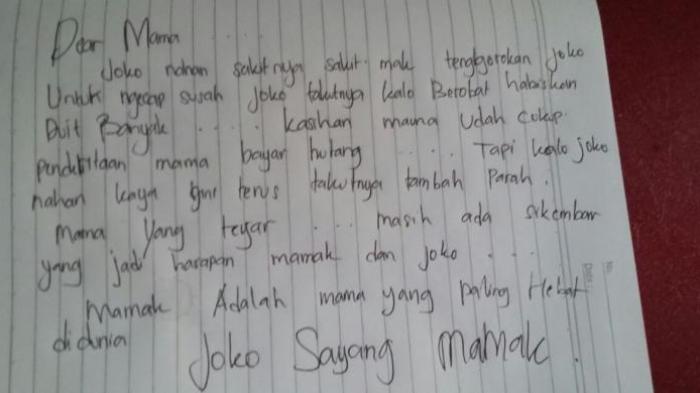 Dear Mama ....
Joko nahan sakitnya sakit mak tenggorokan joko
Untuk ngecap susah joko takutnya kalo Berobat habiskan
Duit Banyak .... kasihan mama udah cukup
penderitaan mama bayar hutang .... Tapi kalo joko
nahan kaya gini terus takutnya tambah Parah.
mama yang tegar ... masih ada sikembar
yang jadi harapan mamak dan joko ...
Mamak Adalah mama yang paling Hebat
didunia
Joko Sayang mamak.